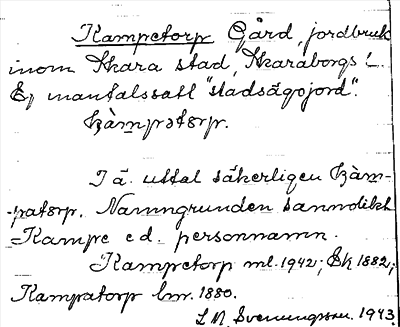 Kampetorp Gård, jordbruk
inom Skara stad, Skaraborgs l.
Ej mantalssatt "stadsägojord".
kàmpatàrp.
I ä. uttal säkerligen kàm-
-patàrp. Namngrunden sannolikt
Kampe ed. personnamn.
Kampetorp ml. 1942; Ek 1882;
Kampatorp lmr. 1880.
L M Svenungsson. 1943.